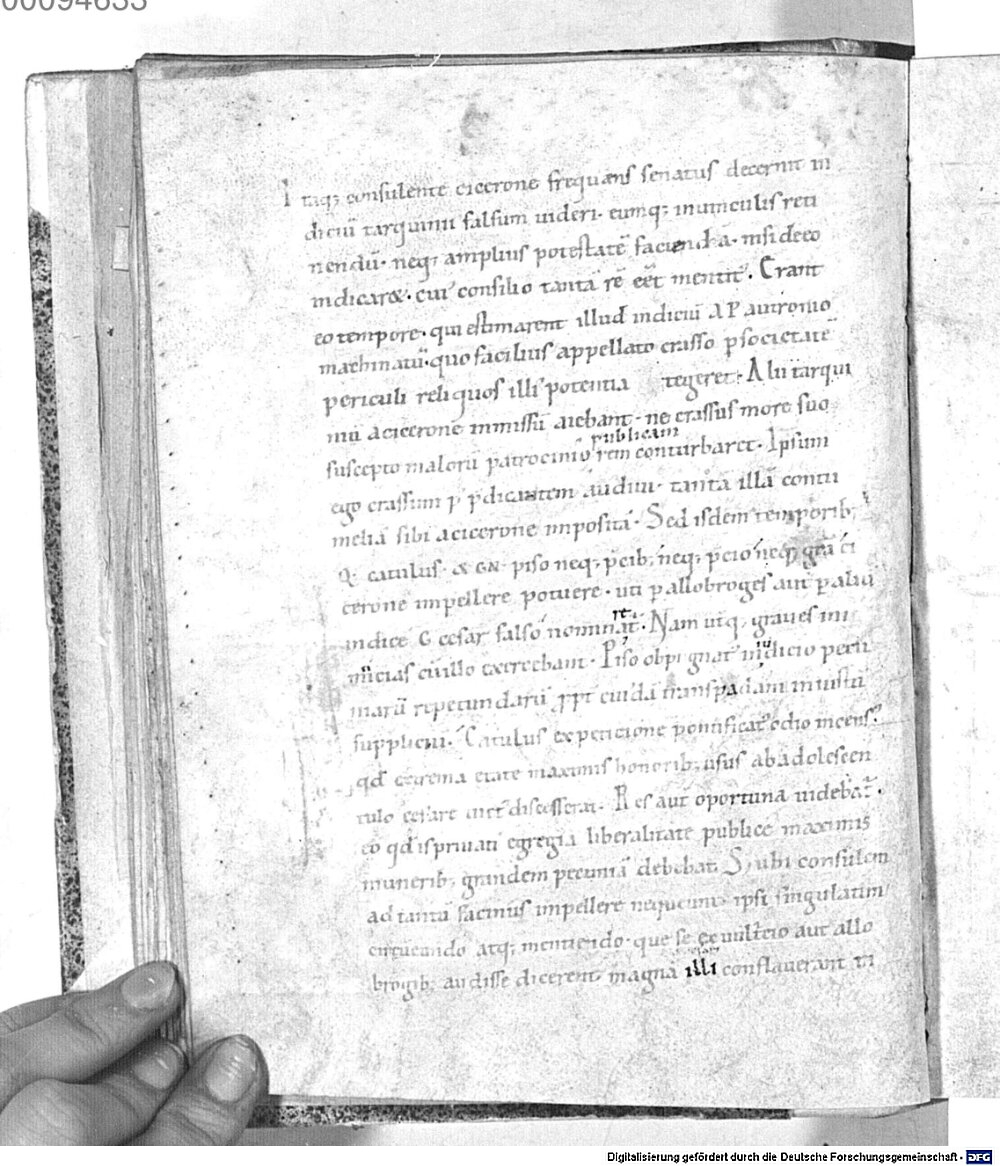 00094633
Itaq; consulente cicerone frequens senatus decernit in
diciū tarquinii falsum uideri· eumq; in uinculis reti
nendū· neq; amplius potestatē faciendā· nisi de eo
indicaret· cui consilio tantā rē eēt mentit᷒. Erant
eo tempore· qui estimarent illud indiciū a P autronio
machinatū· quo facilius appellato crasso p societatē
periculi reliquos illi᷒ potentia tegeret· Alii tarqui
niū a cicerone inmissū aiebant· ne crassus more suo
publicam
suscepto malorū patrocinio rem conturbaret· Ipsum
ego crassum p᷒ p̄dicantem audiui· tantā illā contu
meliā sibi a cicerone impositā· Sed isdem temporib;
Q· catulus· & GN· piso neq; p̄cib; neq; p̄cio neq; grā ci
cerone impellere potuere· uti p allobroges aut p aliū
re
indicē C cesar falso nominat᷒· Nam utq; graues ini
micias cū illo exercebant· Piso obpugnat᷒ in iudicio pecu
niarū repetundarū ꝓpt᷒ cuidā transpadani iniustū
suppliciū· Catulus ex peticione pontificat᷒ odio incens᷒·
qd extrema etate maximis honorib; usus ab adolescen
tulo cesare uict᷒ discesserat· Res aut oportuna uidebat᷒·
eo qd is priuati egregia liberalitate publice maximis
munerib; grandem pecuniā debebat· S; ubi consulem
ad tantū facinus impellere nequeunt· ipsi singulatim
circueundo atq; mentiendo· que se ex uulturcio aut allo
brogib; audisse dicerent magnā illi conflauerant in
Digitalisierung gefördert durch die Deutsche Forschungsgemeinschaft - DFG